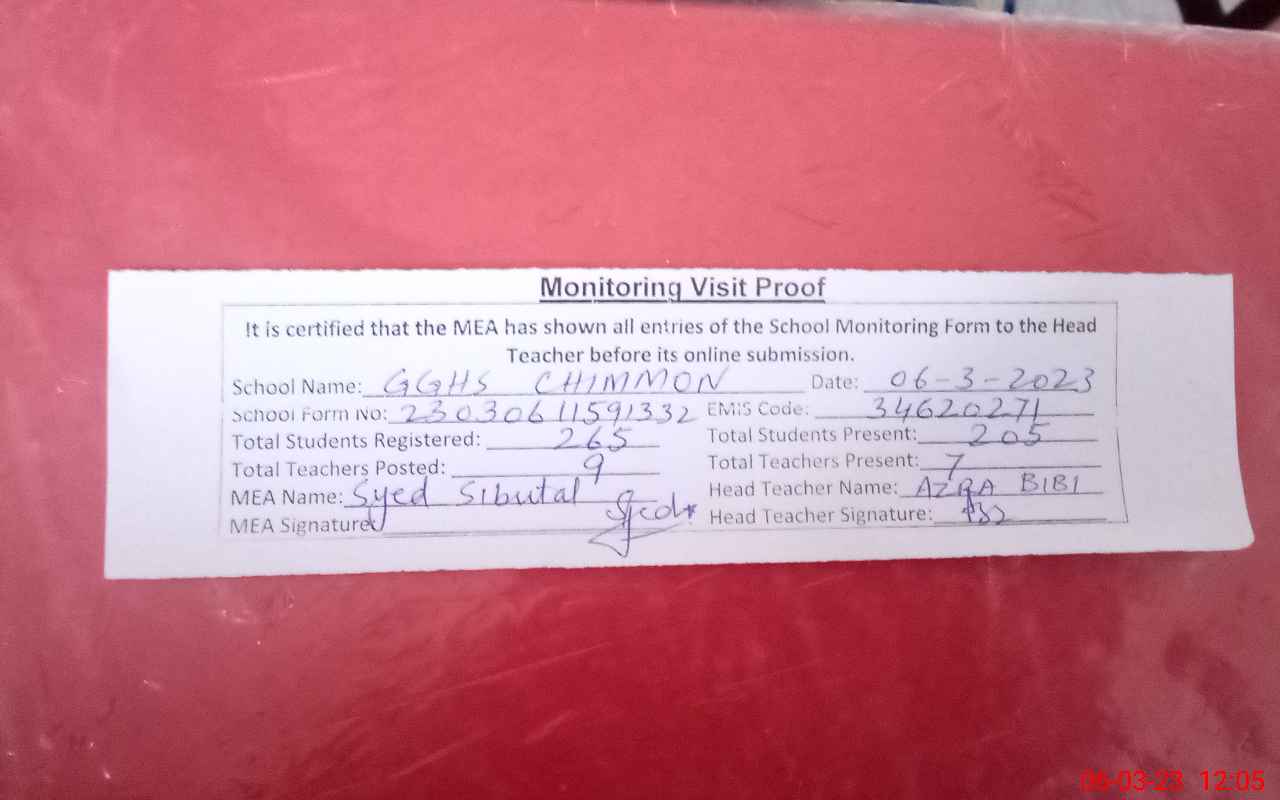 Monitoring Visit Proof
It is certified that the MEA has shown all entries of the School Monitoring Form to the Head
Teacher before its online submission.
School Name: GGHS CHIMMON Date: 06-3-2023
School Form No: 23030611591332 EMIS Code: 34620271
Total Students Registered: 265 Total Students Present: 205
Total Teachers Posted: 9 Total Teachers Present: 7
MEA Name: Syed Sibutal Head Teacher Name: AZRA BIBI
MEA Signature: Head Teacher Signature:
06-03-23 12:05